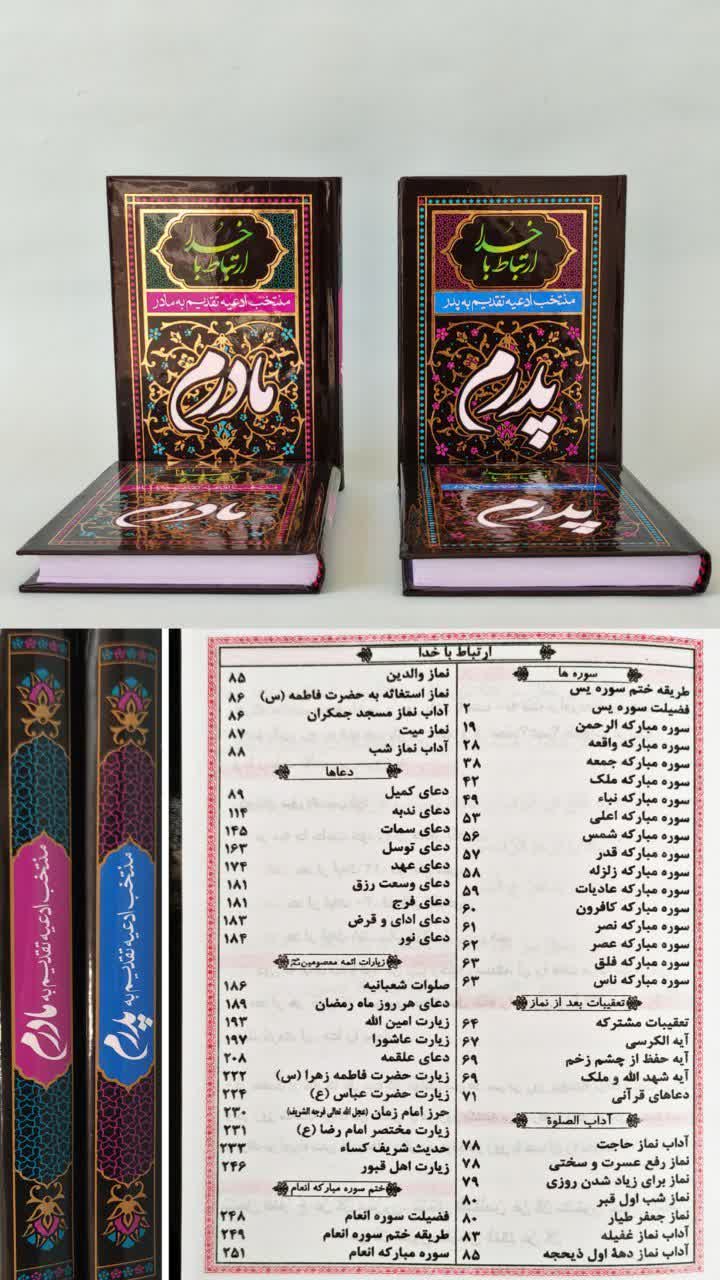 ارتباط با خدا
منتخب ادعیه تقدیم به پدر
پدرم
ارتباط با خدا
منتخب ادعیه تقدیم به مادر
مادرم
پدرم
مادرم
منتخب ادعیه تقدیم به پدرم
منتخب ادعیه تقدیم به مادرم
ارتباط با خدا
سوره ها
طریقه ختم سوره یس
فضیلت سوره یس ۲
سوره مبارکه الرحمن ۱۹
سوره مبارکه واقعه ۲۸
سوره مبارکه جمعه ۳۸
سوره مبارکه ملک ۴۲
سوره مبارکه نباء ۴۹
سوره مبارکه اعلی ۵۳
سوره مبارکه شمس ۵۶
سوره مبارکه قدر ۵۷
سوره مبارکه زلزله ۵۸
سوره مبارکه عادیات ۵۹
سوره مبارکه کافرون ۶۰
سوره مبارکه نصر ۶۱
سوره مبارکه عصر ۶۲
سوره مبارکه فلق ۶۳
سوره مبارکه ناس ۶۳
تعقیبات بعد از نماز
تعقیبات مشترکه ۶۴
آیه الکرسی ۶۷
آیه حفظ از چشم زخم ۶۹
آیه شهد الله و ملک ۶۹
دعاهای قرآنی ۷۱
آداب الصلوة
آداب نماز حاجت ۷۸
نماز رفع عسرت و سختی ۷۸
نماز برای زیاد شدن روزی ۷۹
نماز شب اول قبر ۸۰
نماز جعفر طیار ۸۰
آداب نماز غفیله ۸۳
آداب نماز دههٔ اول ذیحجه ۸۵
نماز والدین ۸۵
نماز استغاثه به حضرت فاطمه (س) ۸۶
آداب نماز مسجد جمکران ۸۶
نماز میت ۸۷
آداب نماز شب ۸۸
دعاها
دعای کمیل ۸۹
دعای ندبه ۱۱۴
دعای سمات ۱۴۵
دعای توسل ۱۶۳
دعای عهد ۱۷۴
دعای وسعت رزق ۱۸۱
دعای فرج ۱۸۱
دعای ادای و قرض ۱۸۳
دعای نور ۱۸۴
زیارات ائمه معصومین
صلوات شعبانیه ۱۸۶
دعای هر روز ماه رمضان ۱۸۹
زیارت امین الله ۱۹۳
زیارت عاشورا ۱۹۷
دعای علقمه ۲۰۸
زیارت حضرت فاطمه زهرا (س) ۲۲۲
زیارت حضرت عباس (ع) ۲۲۴
حرز امام زمان (عجل الله تعالی فرجه الشریف) ۲۳۰
زیارت مختصر امام رضا (ع) ۲۳۱
حدیث شریف کساء ۲۳۳
زیارت اهل قبور ۲۴۶
ختم سوره مبارکه انعام
فضیلت سوره انعام ۲۴۸
طریقه ختم سوره انعام ۲۴۹
سوره مبارکه انعام ۲۵۱